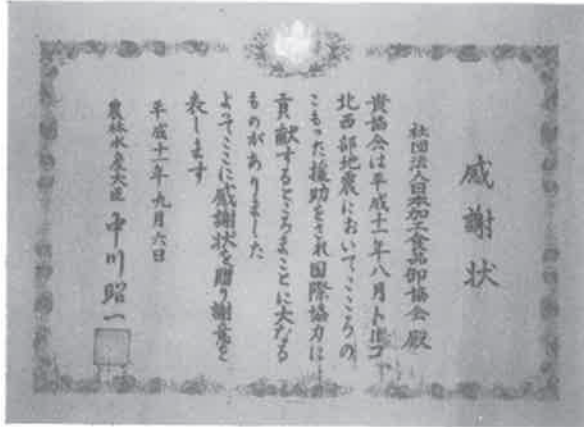 感謝状
社団法人日本加工食品卸協会 殿
貴協会は平成十一年八月トルコ
北西部地震においてこころの
こもった援助をされ国際協力に
貢献するところまことに大なる
ものがありました
よってここに感謝状を贈り謝意を
表します
平成十一年九月六日
農林水産大臣 中川昭一